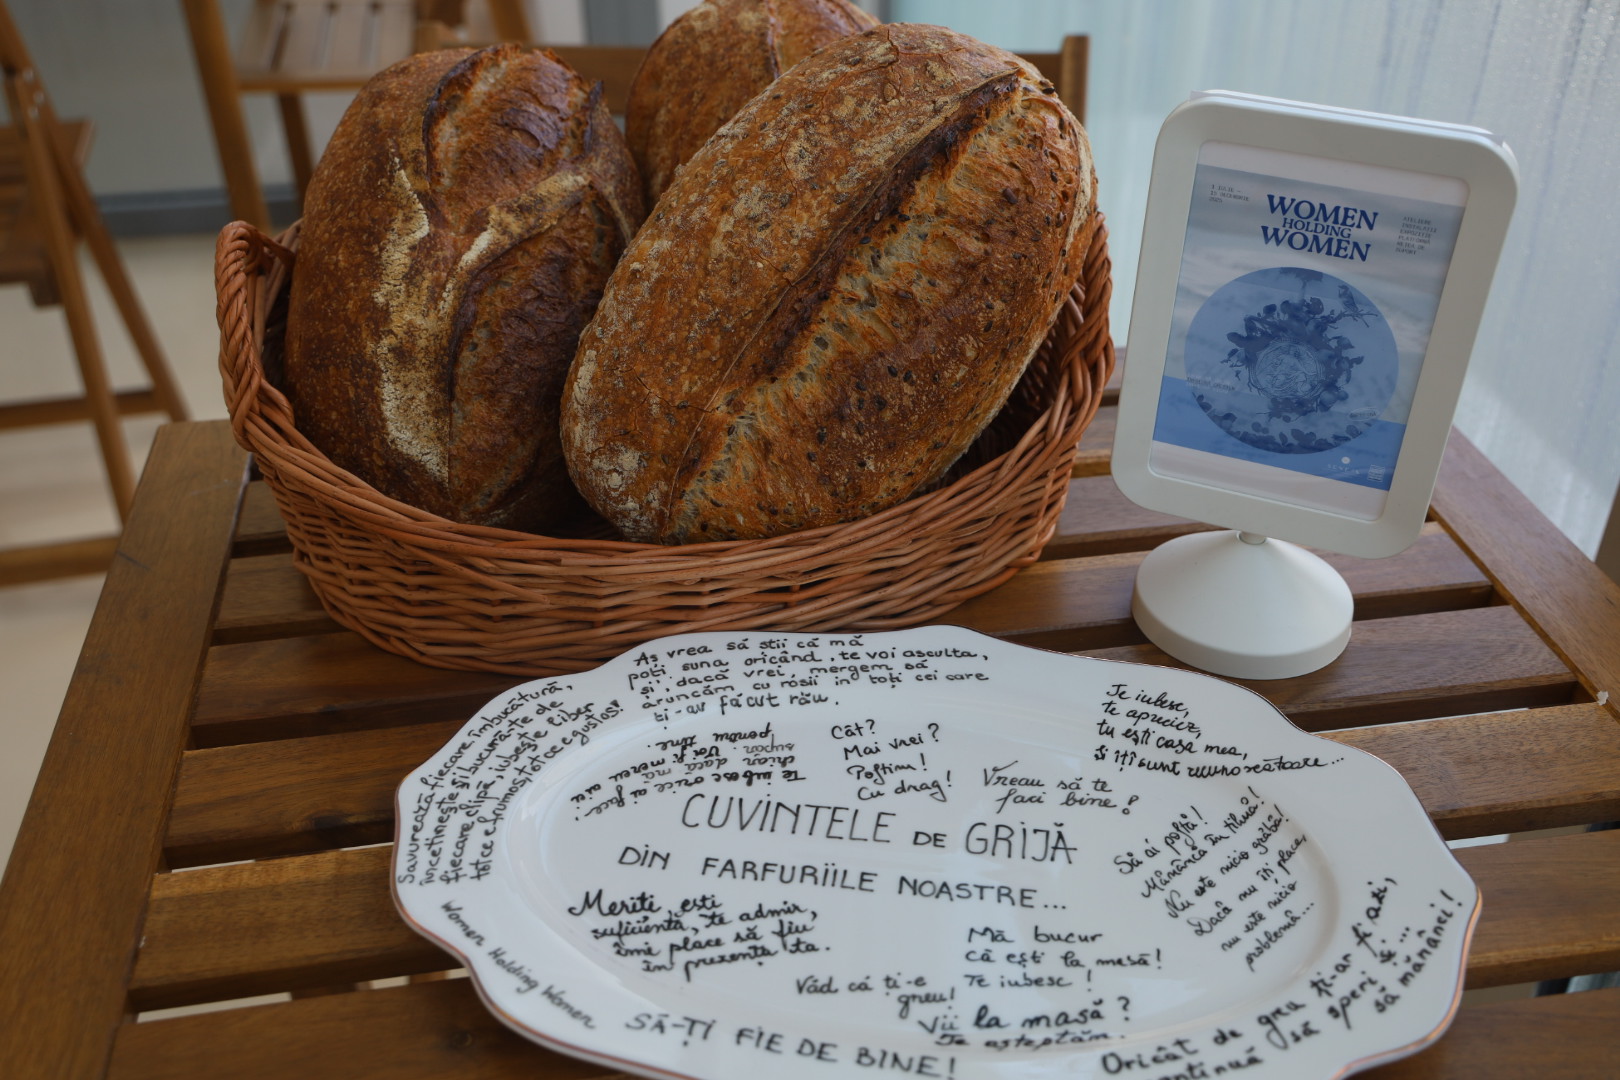 WOMEN
HOLDING
WOMEN
Aș vrea să știi că mă
poți suna oricând, te voi asculta,
și, dacă vrei, mergem să
aruncăm cu roșii în toți cei care
ți-au făcut rău.
Savurează fiecare îmbucătură,
încetinește și bucură-te de
fiecare clipă, iubește liber
tot ce e frumos, tot ce e gustos!
Te iubesc orice ai face.
chiar dacă mă
supăr. Voi fi mereu aici
pentru tine.
Cât?
Mai vrei?
Poftim!
Cu drag!
Te iubesc,
te apreciez,
tu ești casa mea,
și îți sunt recunoscătoare...
Vreau să te
faci bine?
CUVINTELE DE GRIJĂ
DIN FARFURIILE NOASTRE...
Să ai poftă!
Mănâncă în tihnă!
Nu este nicio grabă!
Dacă nu îți place,
nu este nicio
problemă...
Meriți, ești
suficientă, te admir,
îmi place să fiu
în prezența ta.
Mă bucur
că ești la masă!
Te iubesc!
Văd că ți-e
greu!
Vii la masă?
Te așteptăm.
Women Holding Women
SĂ-ȚI FIE DE BINE!
Oricât de greu ți-ar fi azi,
continuă să speri și...
să mănânci!